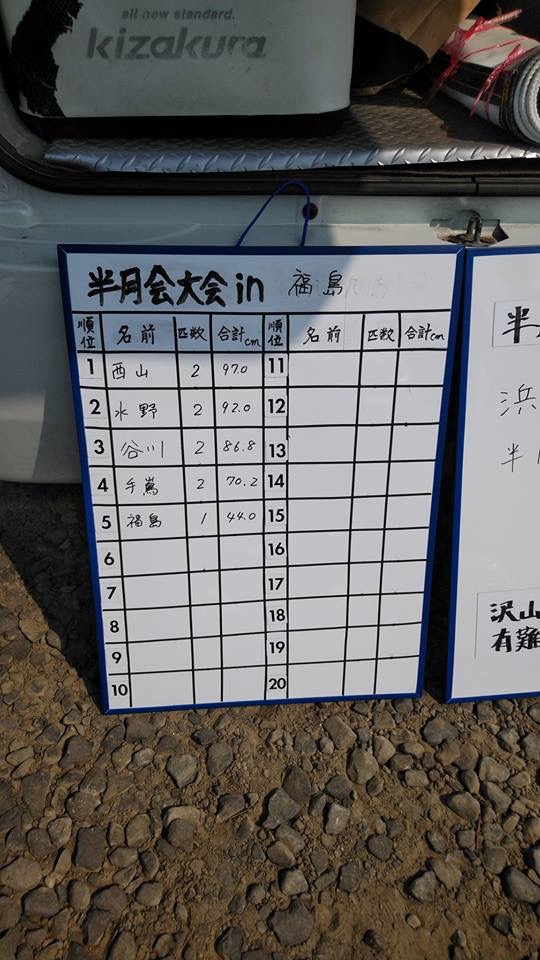 all new standard.
kizakura
半月会大会in 福島
順位 名前 匹数 合計cm 順位 名前 匹数 合計cm
1 西山 2 97.0 11
2 水野 2 92.0 12
3 谷川 2 86.8 13
4 手嶌 2 70.2 14
5 福島 1 44.0 15
6 16
7 17
8 18
9 19
10 20
半
浜
半
沢山
有難